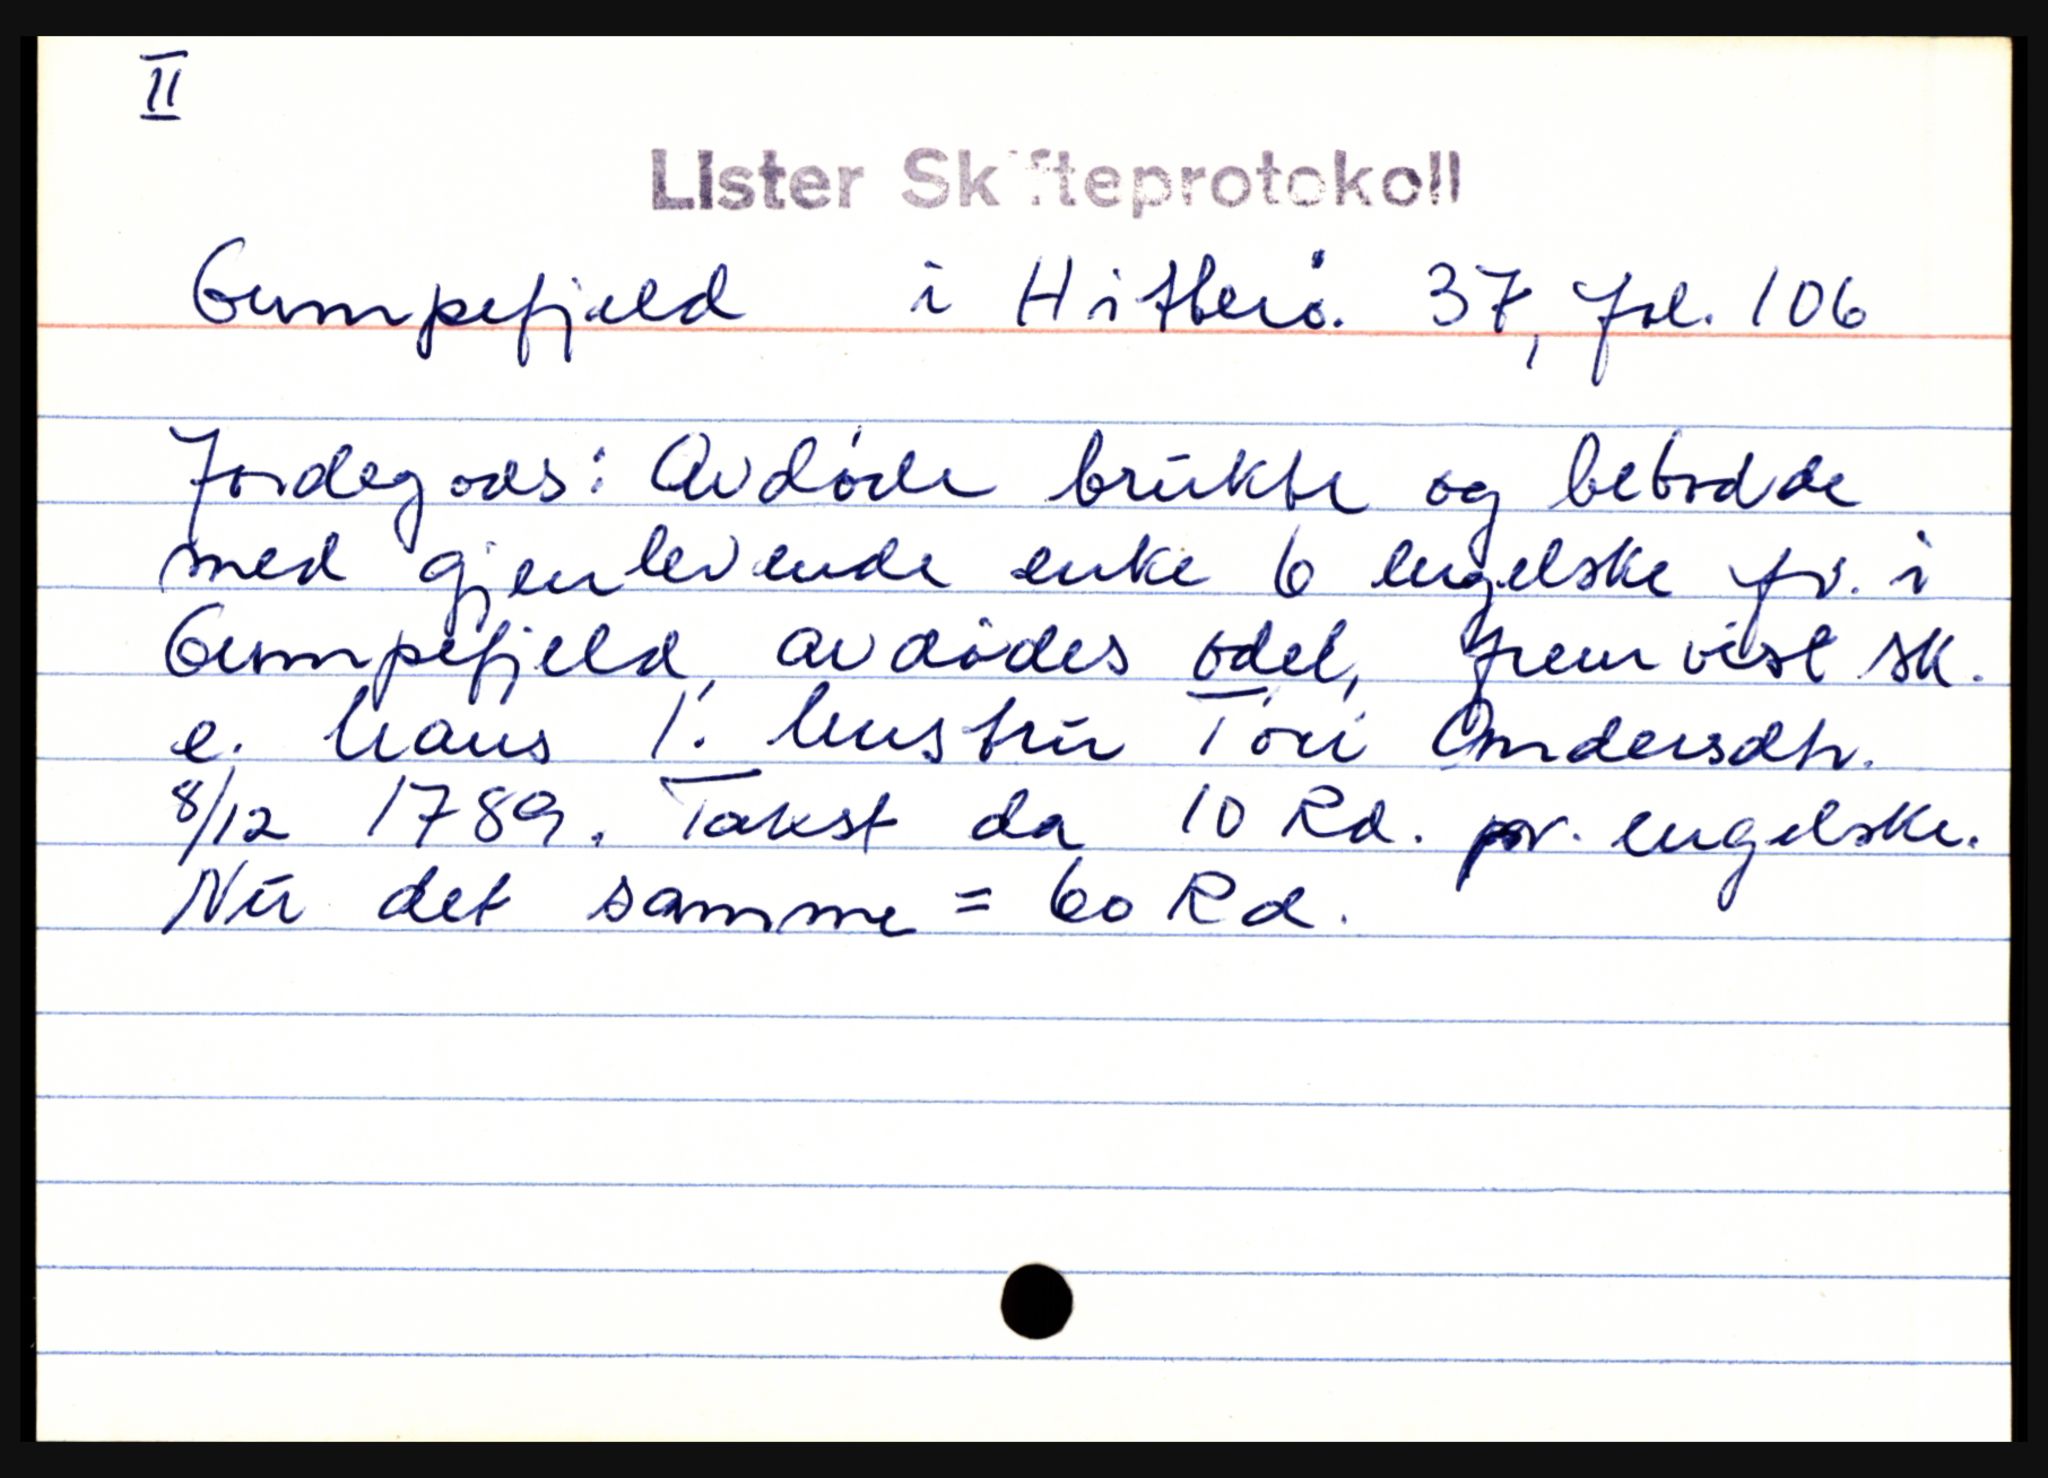 II
Lister Skifteprotokoll
Gumpefjeld i Hitterø. 37, fol. 106
Jordegods: Avdøde brukte og bebodde
med gjenlevende enke 6 engelske fv. i
Gumpefjeld, avdødes odel, fremvist sk.
e. hans 1. hustru Tori Omdersdtr.
8/12 1789. Takst da 10 Rd. pr. engelske.
Nu det samme = 60 Rd.